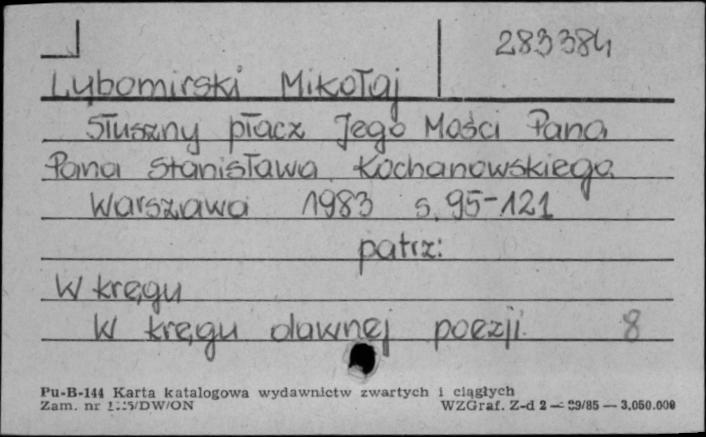 283384
Lubomirski Mikołaj
Słuszny płacz Jego Mości Pana
Pana Stanisława Kochanowskiego
Warszawa 1983 s. 95-121
patrz:
W kręgu
W kręgu dawnej poezji. 8
Pu-B-144 Karta katalogowa wydawnictw zwartych i ciągłych
Zam. nr /DW/ON WZGraf. Z-d 2 — 89/85 — 3,050.000